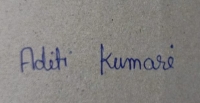 Aditi Kumari